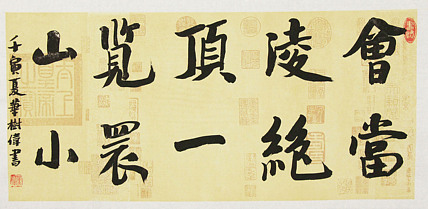 會當
凌絕
頂一
覽眾
山小
壬寅夏華樹偉書